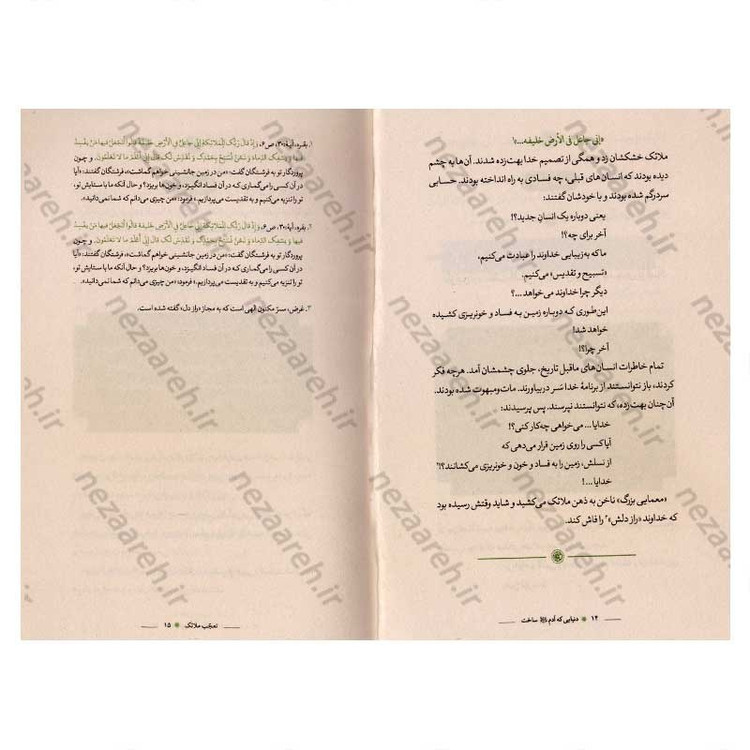 «إنی جاعل فی الأرض خلیفه...»۱
ملائک خشکشان زد و همگی از تصمیم خدا بهت‌زده شدند. آن‌ها به چشم
دیده بودند که انسان‌های قبلی، چه فسادی به راه انداخته بودند. حسابی
سردرگم شده بودند و با خودشان گفتند:
یعنی دوباره یک انسانِ جدید؟!
آخر برای چه؟!
ما که به زیبایی خداوند را عبادت می‌کنیم،
«تسبیح و تقدیس» می‌کنیم.
دیگر چرا خداوند می‌خواهد...؟
این‌طوری که دوباره زمین به فساد و خونریزی کشیده
خواهد شد!
آخر چرا؟!
تمام خاطرات انسان‌های ماقبل تاریخ، جلوی چشمشان آمد. هرچه فکر
کردند، باز نتوانستند از برنامهٔ خدا سَر دربیاورند. مات‌ومبهوت شده بودند.
آن‌چنان بهت‌زده، که نتوانستند نپرسند. پس پرسیدند:
خدایا ... می‌خواهی چه‌کار کنی؟!
آیا کسی را روی زمین قرار می‌دهی که
از نسلش، زمین را به فساد و خون و خونریزی می‌کشانند؟!۲
خدایا ...!
«معمایی بزرگ» ناخن به ذهن ملائک می‌کشید و شاید وقتش رسیده بود
که خداوند «راز دلش»۳ را فاش کند.
۱۴ دنیایی که آدم ساخت
۱. بقره، آیهٔ ۳۰، ص۶. وَإِذْ قَالَ رَبُّكَ لِلْمَلَائِكَةِ إِنِّي جَاعِلٌ فِي الْأَرْضِ خَلِيفَةً قَالُوا أَتَجْعَلُ فِيهَا مَنْ يُفْسِدُ
فِيهَا وَيَسْفِكُ الدِّمَاءَ وَنَحْنُ نُسَبِّحُ بِحَمْدِكَ وَنُقَدِّسُ لَكَ قَالَ إِنِّي أَعْلَمُ مَا لَا تَعْلَمُونَ. و چون
پروردگار تو به فرشتگان گفت «من در زمین جانشینی خواهم گماشت»، فرشتگان گفتند: «آیا
در آن کسی را می‌گماری که در آن فساد انگیزد، و خون‌ها بریزد؟ و حال آنکه ما با ستایش تو،
تو را تنزیه می‌کنیم و به تقدیست می‌پردازیم.» فرمود: «من چیزی می‌دانم که شما نمی‌دانید».
۲. بقره، آیهٔ ۳۰، ص۶. وَإِذْ قَالَ رَبُّكَ لِلْمَلَائِكَةِ إِنِّي جَاعِلٌ فِي الْأَرْضِ خَلِيفَةً قَالُوا أَتَجْعَلُ فِيهَا مَنْ يُفْسِدُ
فِيهَا وَيَسْفِكُ الدِّمَاءَ وَنَحْنُ نُسَبِّحُ بِحَمْدِكَ وَنُقَدِّسُ لَكَ قَالَ إِنِّي أَعْلَمُ مَا لَا تَعْلَمُونَ. و چون
پروردگار تو به فرشتگان گفت «من در زمین جانشینی خواهم گماشت»، فرشتگان گفتند: «آیا
در آن کسی را می‌گماری که در آن فساد انگیزد، و خون‌ها بریزد؟ و حال آنکه ما با ستایش تو،
تو را تنزیه می‌کنیم و به تقدیست می‌پردازیم.» فرمود: «من چیزی می‌دانم که شما نمی‌دانید».
۳. غرض، سرّ مکنون الهی است که به مجاز «راز دل» گفته شده است.
تعجّب ملائک ۱۵
nezaareh.ir